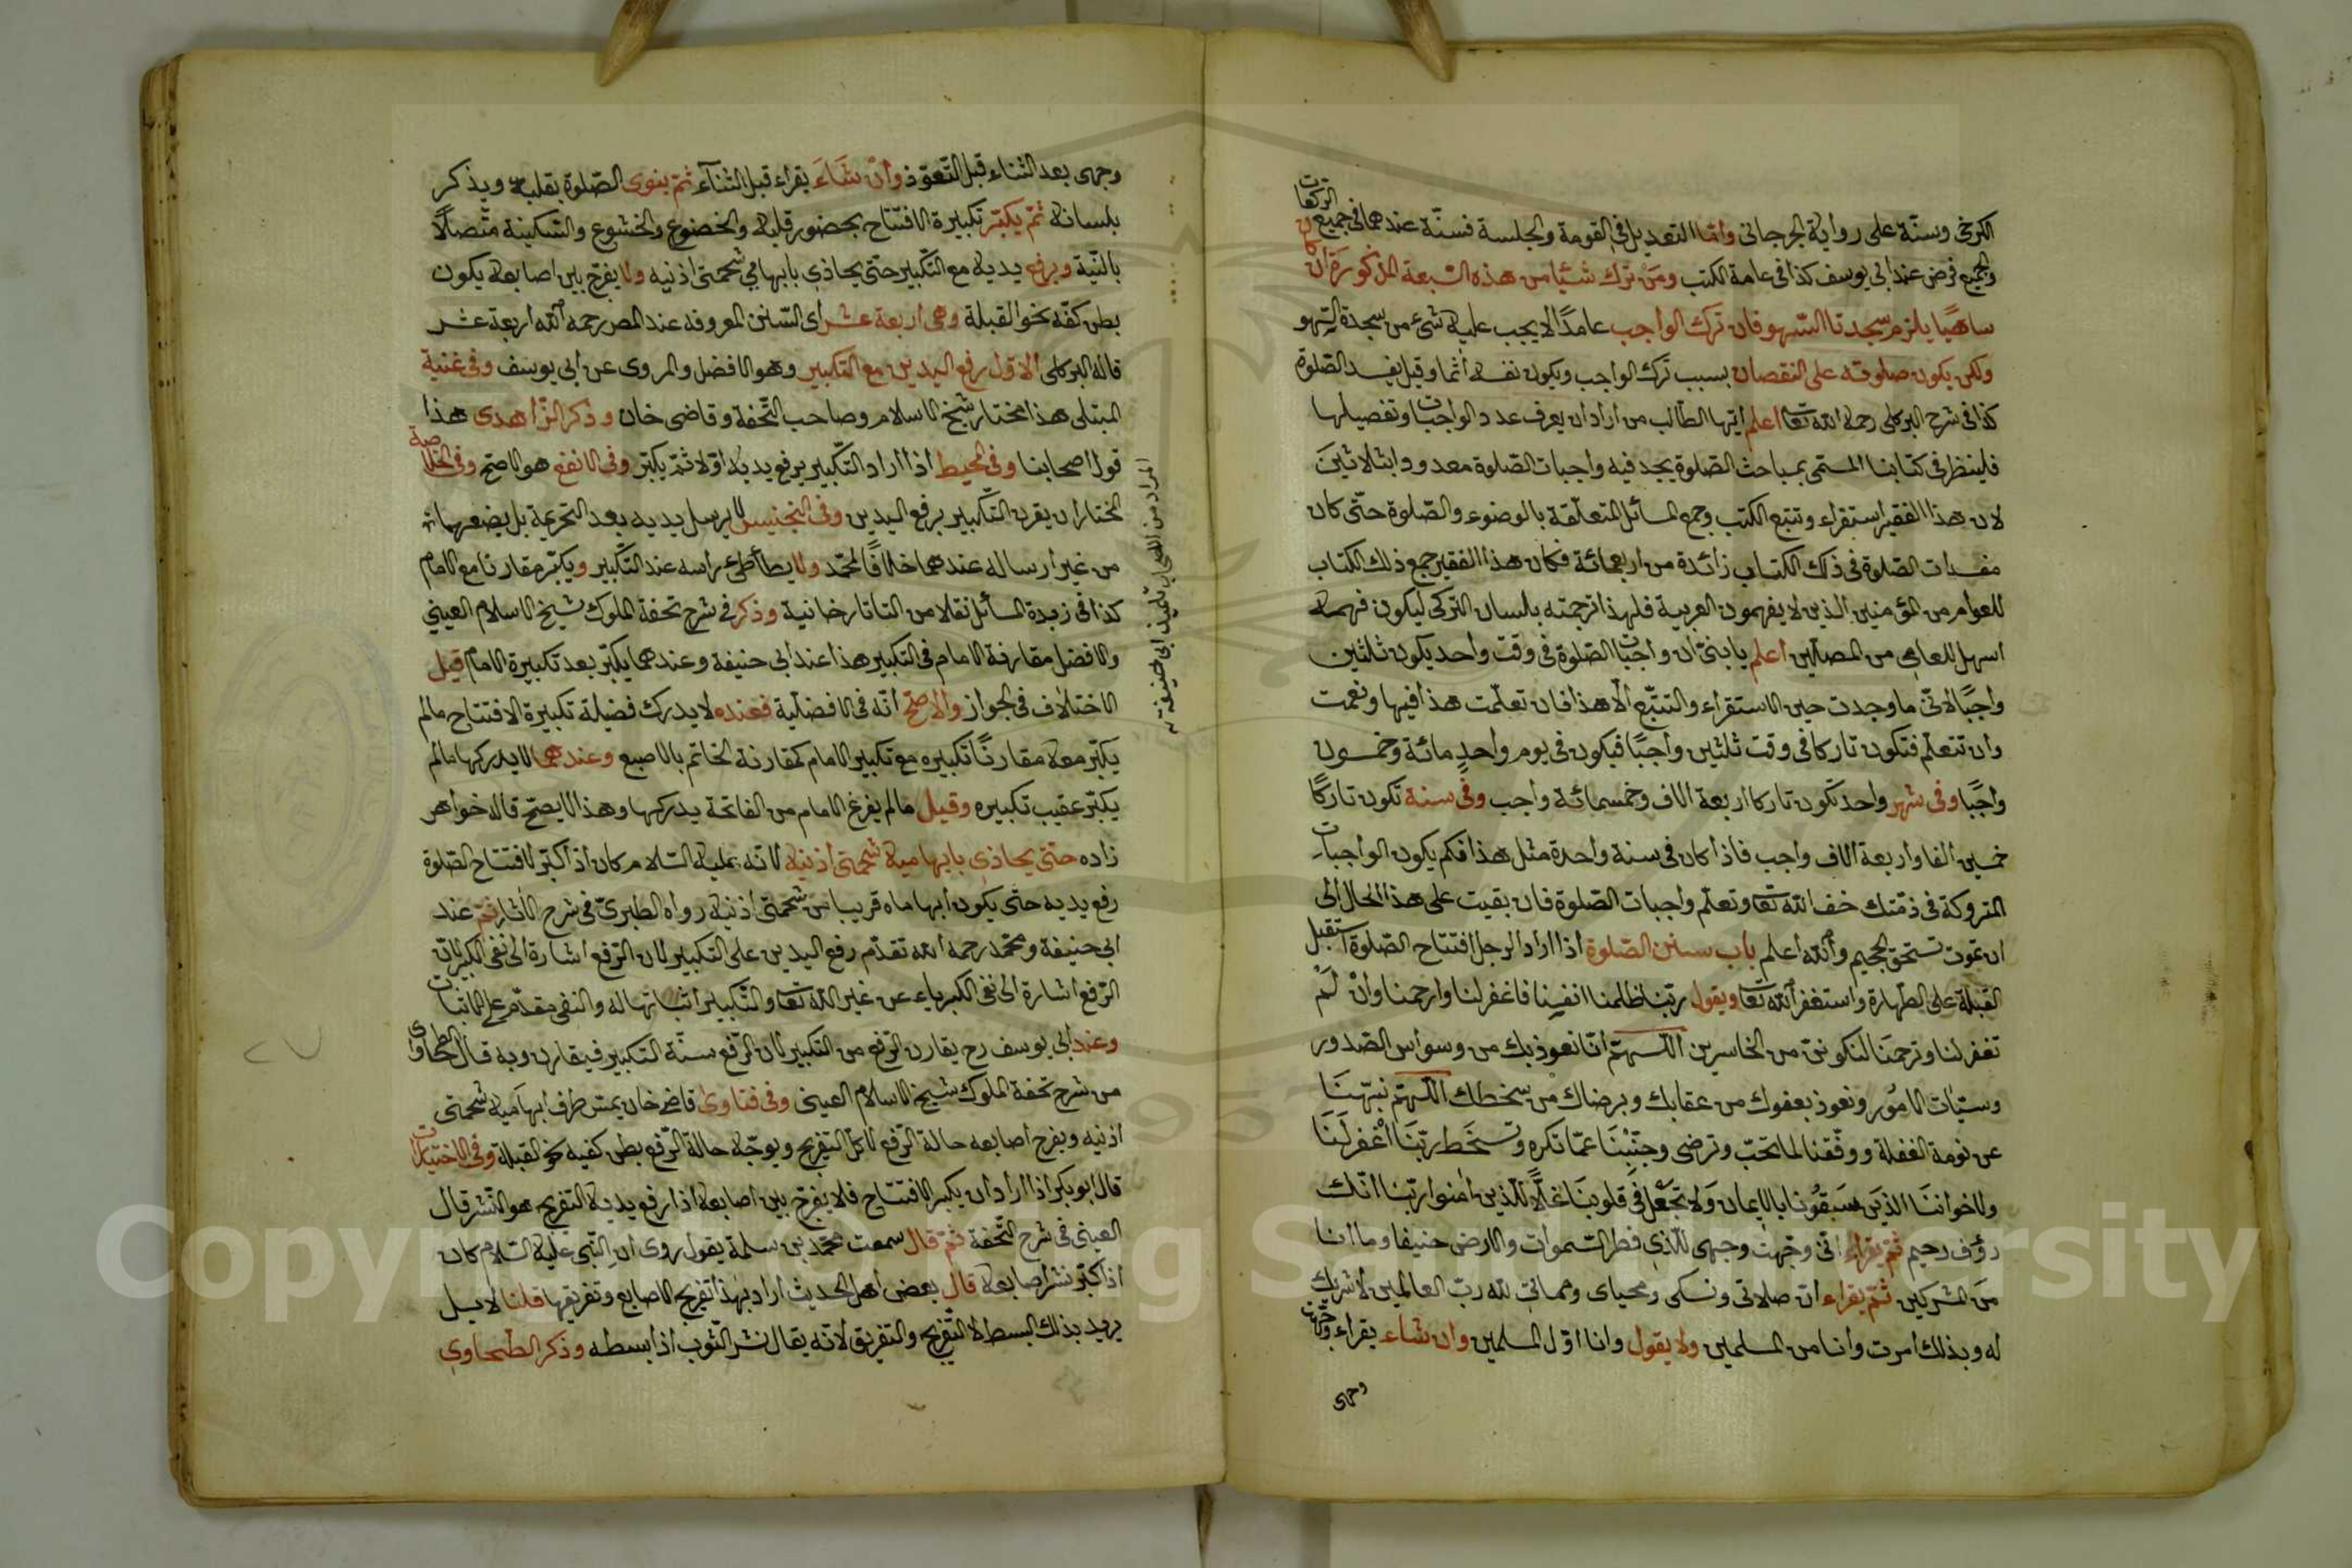 الركعات
الكرخى وسنّة على رواية الجرجانى وامّا التعديل فى القومة والجلسة فسنّة عندهما فى جميع
والجميع فرض عند ابى يوسف كذا فى عامة الكتب ومن ترك شيئا من هذه السّبعة المذكورة ان كان
ساهيًا يلزم سجدتا السّهو فان ترك الواجب عامدًا لا يجب عليه شئ من سجدة السّهو
ولكن يكون صلوته على النقصان بسبب ترك الواجب ويكون نفسه آثما وقيل يفسد الصّلوة
كذا فى شرح البركلى رحمه الله تعا اعلم ايّها الطّالب من اراد ان يعرف عدد الواجبات وتفصيلها
فلينظر فى كتابنا المسمّى بمباحث الصّلوة يجد فيه واجبات الصّلوة معدودا بثلاثين
لان هذا الفقير استقراء وتتبع الكتب وجمع المسائل المتعلّقة بالوضوء والصّلوة حتّى كان
مفسدات الصّلوة فى ذلك الكتاب زائدة من اربعمائة فكان هذا الفقير جمع ذلك الكتاب
للعوام من المؤمنين الذين لا يفهمون العربية فلهذا ترجمته بلسان التركى ليكون فهمه
اسهل للعامى من المصلّين اعلم يا بنىّ ان واجبات الصّلوة فى وقت واحد يكون ثلثين
واجبًا لانّى ما وجدت حين الاستقراء والتتبّع الّا هذا فان تعلّمت هذا فبها ونعمت
وان تتعلّم فتكون تاركا فى وقت ثلثين واجبًا فيكون فى يوم واحد مائة وخمسون
واجبًا وفى شهر واحد تكون تاركا اربعة الاف وخمسمائة واجب وفى سنة تكون تاركًا
خمسين الفا واربعة الاف واجب فاذا كان فى سنة واحدة مثل هذا فكم يكون الواجبات
المتروكة فى ذمّتك خف الله تعا وتعلّم واجبات الصّلوة فان بقيت على هذا الحال الى
ان تموت تستحق الجحيم والله اعلم باب سنن الصّلوة اذا اراد الرجل افتتاح الصّلوة استقبل
القبلة على الطّهارة واستغفر الله تعا ويقول ربّنا ظلمنا انفسنا فاغفر لنا وارحمنا وان لم
تغفر لنا وترحمنا لنكوننّ من الخاسرين اللّهمّ انّا نعوذ بك من وسواس الصّدور
وسيّئات الامور ونعوذ بعفوك من عقابك وبرضاك من سخطك اللّهمّ نبّهنا
عن نومة الغفلة ووفّقنا لما تحبّ وترضى وجنّبنا عمّا تكره وتسخط ربّنا اغفر لنا
ولاخواننا الذين سبقونا بالايمان ولا تجعل فى قلوبنا غلّا للّذين امنوا ربّنا انّك
رؤف رحيم ثمّ يقراء انّى وجّهت وجهى للّذى فطر السّموات والارض حنيفا وما انا
من المشركين ثمّ يقراء انّ صلاتى ونسكى ومحياى ومماتى لله ربّ العالمين لا شريك
له وبذلك امرت وانا من المسلمين ولا يقول وانا اوّل المسلمين وان شاء يقراء وجّهت
وجهى
وجهى بعد الثناء قبل التّعوّذ وان شاء يقراء قبل الثّناء ثمّ ينوى الصّلوة بقلبه ويذكر
بلسانه ثمّ يكبّر تكبيرة الافتتاح بحضور قلبه والخضوع والخشوع والسّكينة متّصلًا
بالنّية ويرفع يديه مع التّكبير حتّى يحاذى بابهامي شحمتى اذنيه ولا يفرّج بين اصابعه يكون
بطن كفّه نحو القبلة وهى اربعة عشر اى السّنن المعروفة عند المص رحمه الله اربعة عشر
قاله البركلى الاوّل رفع اليدين مع التكبير وهو الافضل والمروى عن ابى يوسف وفى غنية
المبتلى هذا مختار شيخ الاسلام وصاحب التّحفة وقاضى خان وذكر الزّاهدى هذا
قول اصحابنا وفى المحيط اذا اراد التّكبير يرفع يديه اوّلا ثمّ يكبّر وفى الانفع هو الاصحّ وفى الخلاصة
المختار ان يقرن التّكبير برفع اليدين وفى التجنيس لا يرسل يديه بعد التحريمة بل يضعهما
من غير ارساله عندهما خلافًا لمحمّد ولا يطأطئ راسه عند التّكبير ويكبّر مقارنا مع الامام
كذا فى زبدة المسائل نقلا من التاتارخانية وذكر فى شرح تحفة الملوك شيخ الاسلام العيني
والافضل مقارنة الامام فى التكبير هذا عند ابى حنيفة وعندهما يكبّر بعد تكبيرة الامام قيل
الاختلاف فى الجواز والاصحّ انّه فى الافضلية فعنده لا يدرك فضيلة تكبيرة الافتتاح ما لم
يكبّر معه مقارنًا تكبيره مع تكبير الامام كمقارنة الخاتم بالاصبع وعندهما لا يدركها ما لم
يكبّر عقيب تكبيره وقيل ما لم يفرغ الامام من الفاتحة يدركها وهذا لا يصحّ قاله خواهر
زاده حتّى يحاذى بابهاميه شحمتى اذنيه لانّه عليه السّلام كان اذا كبّر لافتتاح الصّلوة
رفع يديه حتى يكون ابهاماه قريبا من شحمتى اذنيه رواه الطبرىّ فى شرح الاثار ثمّ عند
ابى حنيفة ومحمّد رحمه الله تقدّم رفع اليدين على التكبير لان الرّفع اشارة الى نفى الكبر لانّ
الرّفع اشارة الى نفى الكبرياء عن غير الله تعا والتّكبير اثباتها له والنفى مقدّم على الاثبات
وعند ابى يوسف رح يقارن الرّفع من التكبير لان الرّفع سنّة التكبير فيقارن وبه قال الطحاوى
من شرح تحفة الملوك شيخ الاسلام العينى وفى فتاوى قاضيخان يمسّ طرف ابهاميه شحمتى
اذنيه ويفرج اصابعه حالة الرّفع لا كلّ التفريج ويوجّه حالة الرّفع بطن كفيه نحو القبلة وفى الاختيارات
قال ابو بكر اذا اراد ان يكبر الافتتاح فلا يفرّج بين اصابعه اذا رفع يديه التفريج هو النّشر قال
العينى فى شرح التّحفة ثمّ قال سمعت محمّد بن سلمة يقول روى ان النّبى عليه السّلام كان
اذا كبّر نشر اصابعه قال بعض اهل الحديث اراد بهذا تفريج الاصابع وتفريقها قلنا لا بل
يريد بذلك البسط لا التّفريج والتفريق لانّه يقال نشر الثّوب اذا بسطه وذكر الطّحاوى
المراد من اللسحاب
Copyright © King Saud University